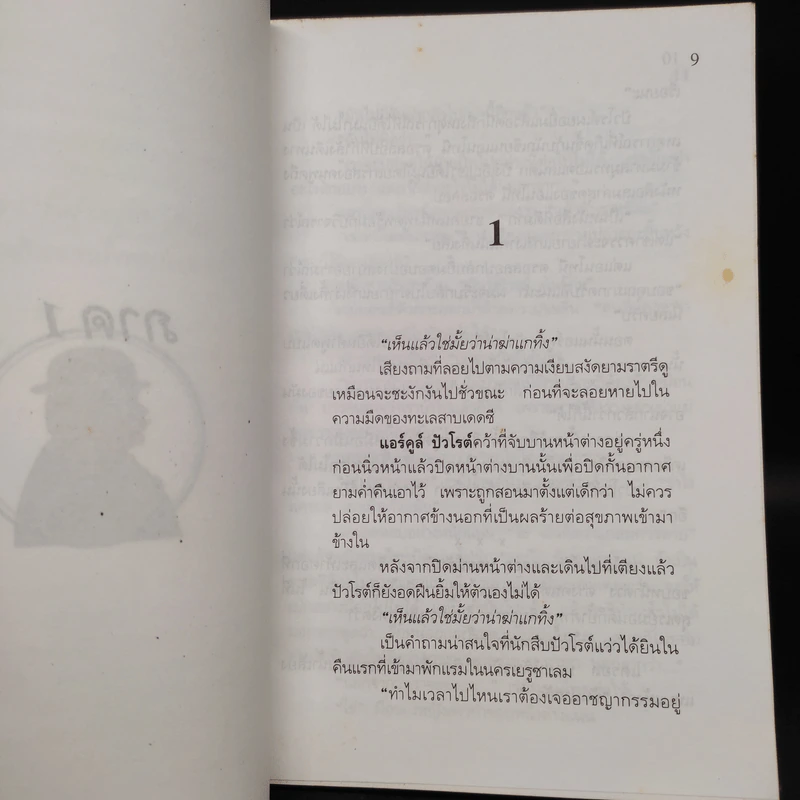 9
1
“เห็นแล้วใช่มั้ยว่าน่าฆ่าแกทิ้ง”
เสียงถามที่ลอยไปตามความเงียบสงัดยามราตรีดู
เหมือนจะชะงักงันไปชั่วขณะ ก่อนที่จะลอยหายไปใน
ความมืดของทะเลสาบเดดซี
แอร์คูล์ ปัวโรต์คว้าที่จับบานหน้าต่างอยู่ครู่หนึ่ง
ก่อนนิ่วหน้าแล้วปิดหน้าต่างบานนั้นเพื่อปิดกั้นอากาศ
ยามค่ำคืนเอาไว้ เพราะถูกสอนมาตั้งแต่เด็กว่า ไม่ควร
ปล่อยให้อากาศข้างนอกที่เป็นผลร้ายต่อสุขภาพเข้ามา
ข้างใน
หลังจากปิดม่านหน้าต่างและเดินไปที่เตียงแล้ว
ปัวโรต์ก็ยังอดฝืนยิ้มให้ตัวเองไม่ได้
“เห็นแล้วใช่มั้ยว่าน่าฆ่าแกทิ้ง”
เป็นคำถามน่าสนใจที่นักสืบปัวโรต์แว่วได้ยินใน
คืนแรกที่เข้ามาพักแรมในนครเยรูซาเลม
“ทำไมเวลาไปไหนเราต้องเจออาชญากรรมอยู่